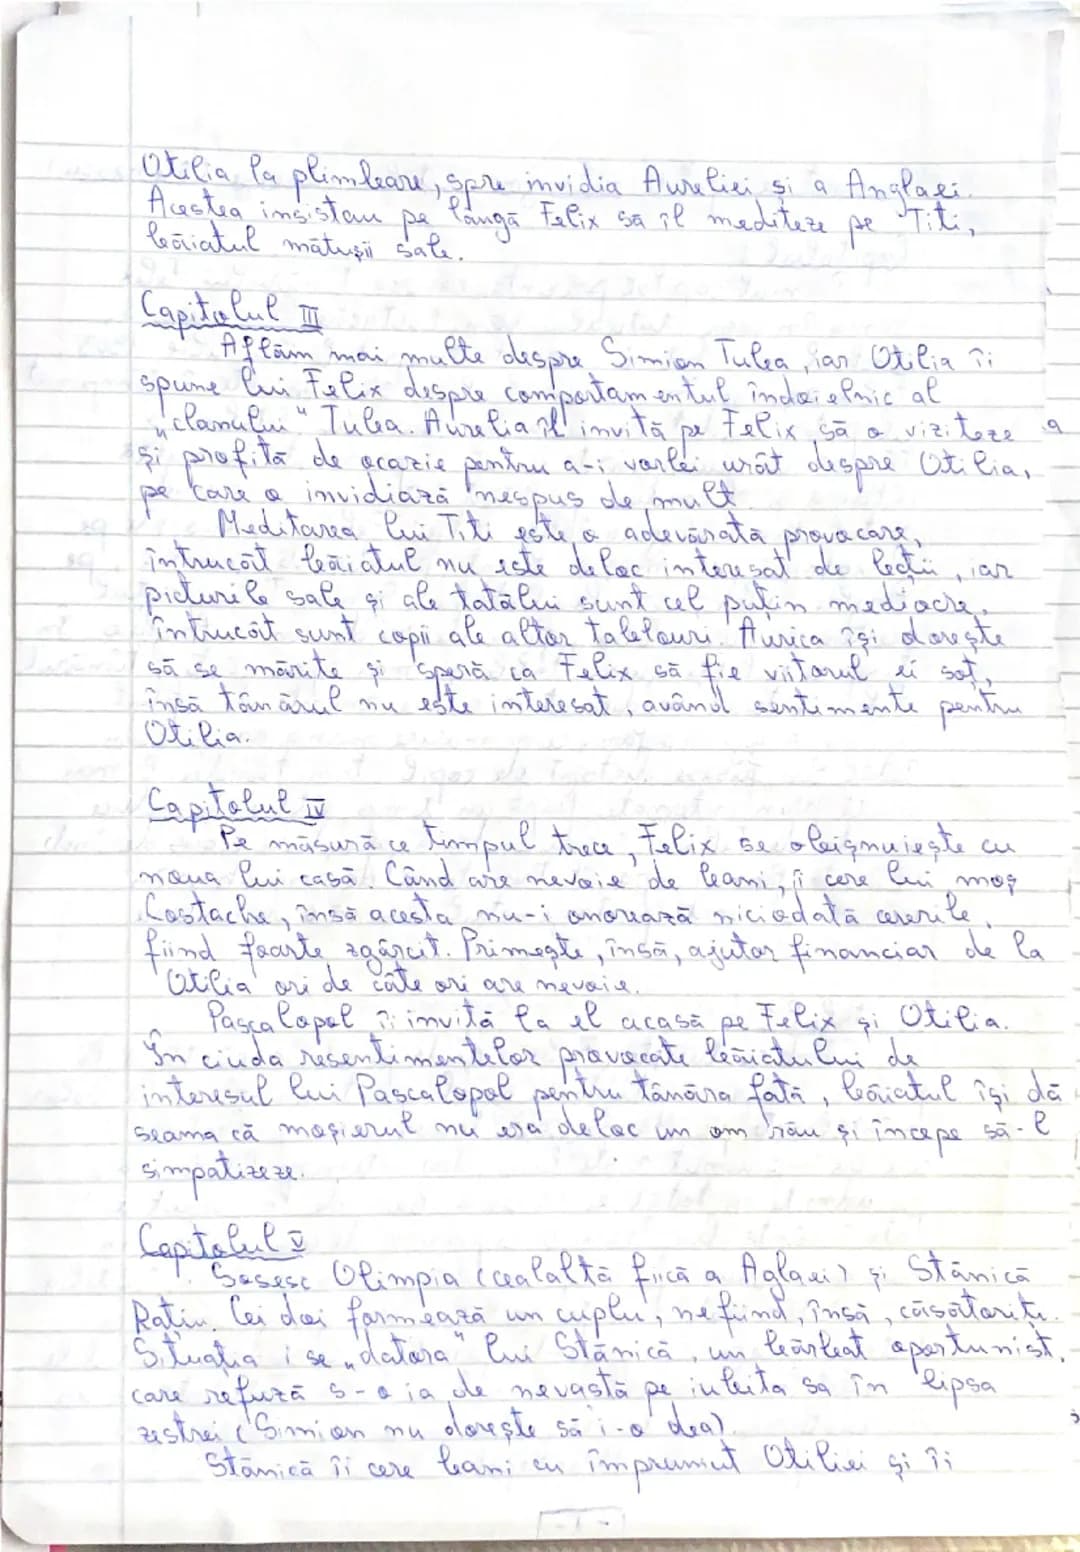 Otilia la plimbare, spre invidia Aureliei și a Anglaei.
Acestea insistau pe lângă Felix să îl mediteze pe Titi,
băiatul mătușii sale.
Capitolul III
Aflăm mai multe despre Simion Tulea, iar Otilia îi
spune lui Felix despre comportamentul îndoielnic al
„clanului" Tulea. Aurelia îl invită pe Felix să o viziteze
și profită de ocazie pentru a-i vorbi urât despre Otilia,
pe care o invidiază nespus de mult.
Meditarea lui Titi este o adevărată provocare,
întrucât băiatul nu este deloc interesat de lecții, iar
picturile sale și ale tatălui sunt cel puțin mediocre,
întrucât sunt copii ale altor tablouri. Aurica își dorește
să se mărite și speră ca Felix să fie viitorul ei soț,
însă tânărul nu este interesat, având sentimente pentru
Otilia.
Capitolul IV
Pe măsură ce timpul trece, Felix se obișnuiește cu
noua lui casă. Când are nevoie de bani, îi cere lui moș
Costache, însă acesta nu-i onorează niciodată cererile,
fiind foarte zgârcit. Primește, însă, ajutor financiar de la
Otilia ori de câte ori are nevoie.
Pascalopol îi invită la el acasă pe Felix și Otilia.
În ciuda resentimentelor provocate băiatului de
interesul lui Pascalopol pentru tânăra fată, băiatul își dă
seama că moșierul nu era deloc un om rău și începe să-l
simpatizeze.
Capitolul V
Sosesc Olimpia (cealaltă fiică a Aglaei) și Stănică
Rațiu. Cei doi formează un cuplu, nefiind, însă, căsătoriți.
Situația i se „datora" lui Stănică, un bărbat oportunist,
care refuză s-o ia de nevastă pe iubita sa în lipsa
zestrei (Simion nu dorește să i-o dea).
Stănică îi cere bani cu împrumut Otiliei și îi
- 1 -